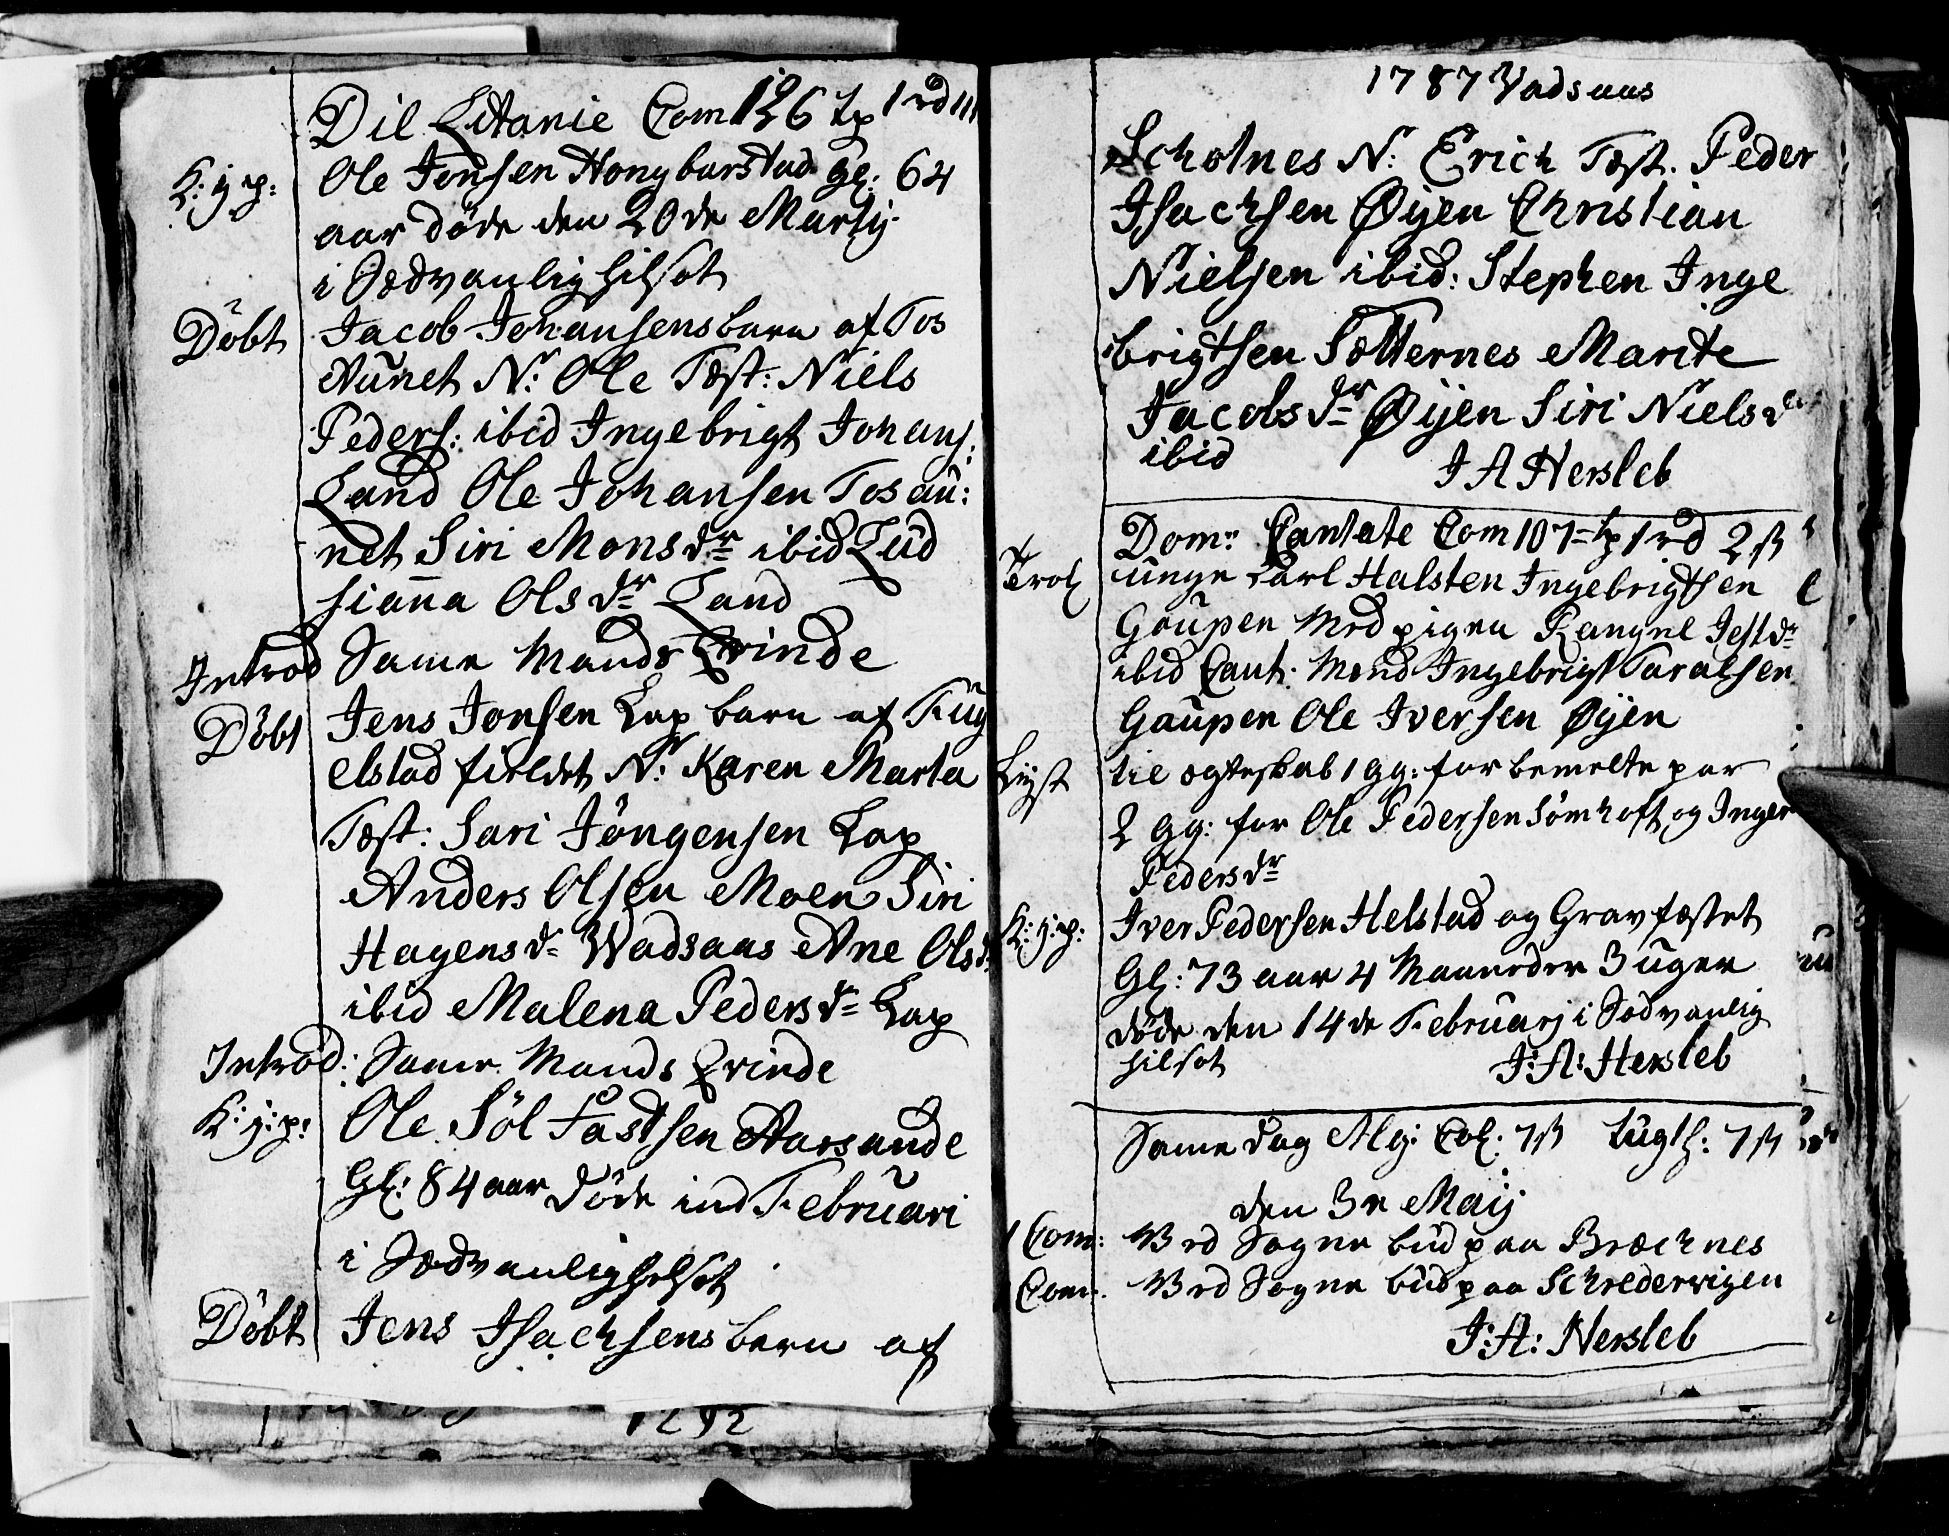 Dil Litanie Com 126 tp 1 rd
K: j: p: Ole Jensen Hongbarstad gl: 64
aar døde den 20de Martij
i Sædvanlig hilsot
Döbt Jacob Johansens barn af Tos
Aunet N: Ole Test: Niels
Peders: ibid Ingebrigt Johans:
Land Ole Johansen Tosau:
net Siri Mons dr ibid Lud
sianna Ols dr Land
Introd Samme Mands Qvinde
Döbt Jens Jonsen Lap barn af Fug
elstad fieldet N: Karen Marta
Test: Sari Jörgensen Lap
Anders Olsen Moen Siri
Hagens dr Wadsaas Ane Ols dr
ibid Malena Peders dr Lap
Introd: Samme Mands Qvinde
K: j: p: Ole Söl Fastsen Aarsande
Gl: 84 aar døde ind Februari
i Sædvanlig helsot
Döbt Jens Isachsens barn af
1787 Vadsaas
Scholnes N: Erich Test. Peder
Isachsen Øyen Christian
Nielsen ibid: Stephen Inge
brigtsen Sætternes Marite
Jacobs dr Øijen Siri Niels dr
ibid
J A Hersleb
Dom: Cantate Com 107 tp 1 rd 2 ß
Trol unge Karl Halsten Ingebrigtsen
Gaupen Med pigen Rangnel Jest dr
ibid Caut: Mend Ingebrigt Taralsen
Gaupen Ole Iversen Øyen
Lyst til ægteskab 1 gg: for bemelte par
2 gg: for Ole Pedersen Sömhoft og Inger
Peders dr
K: j: p: Iver Pedersen Helstad og Gravfæstet
Gl: 73 aar 4 Maaneder 3 uger
døde den 14de Februarj i Sædvanlig
hilsot J: A: Hersleb
Samme dag Mg: Col: 7 ß tugth: 7 ß
den 3e Maij
1 Com: Ved Sognebud paa Bræchnes
Com: Ved Sognebud paa Schredervigen
J: A: Hersleb